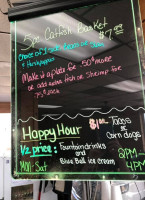 5pc Catfish Basket
$7.99
Choice of 1 side
& Hushpuppies
Make it a plate for .50¢ more
or add extra fish or Shrimp for
Happy Hour
$1.00 Tacos
or
Corn dogs
1/2 price: Fountain drinks
and
Blue Bell ice cream
Mon-Sat
2PM-
4PM